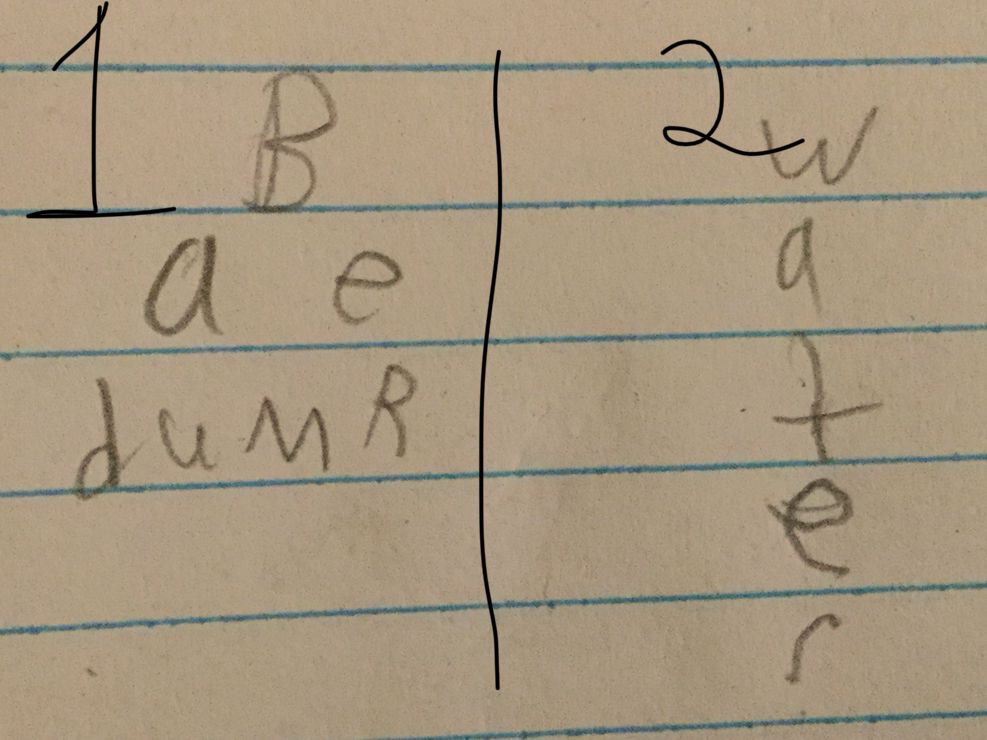 1
B
a e
dumR
2
w
a
t
e
r